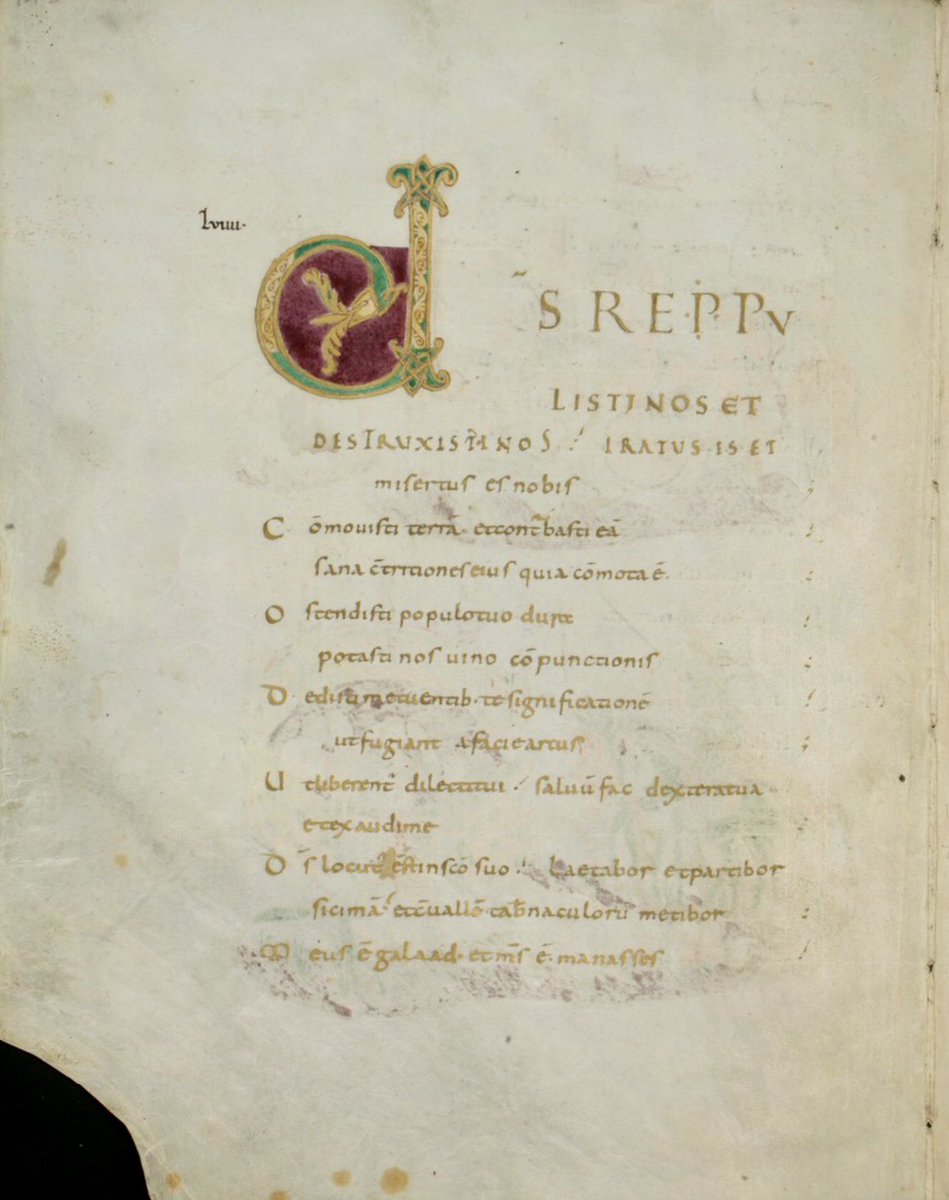 lviiii·
D̄S REPPU
LISTI NOS ET
DESTRUXISTI NOS IRATUS IS ET
misertus es nobis
Cōmouisti terrā et contꝰbasti eā
sana cōtritiones eius quia cōmota ē·
Ostendisti populo tuo dura
potasti nos uino cōpunctionis
Dedisti metuentib· te significationē
ut fugiant a facie arcus
Ut liberent᷑ dilecti tui saluū fac dextera tua
et exaudi me
Dēs locut᷑ ēst in scō suo Laetabor et partibor
sicimā et cōuallē tab̄naculorū metibor
Meus ē galaad· et m̄s ē· manasses